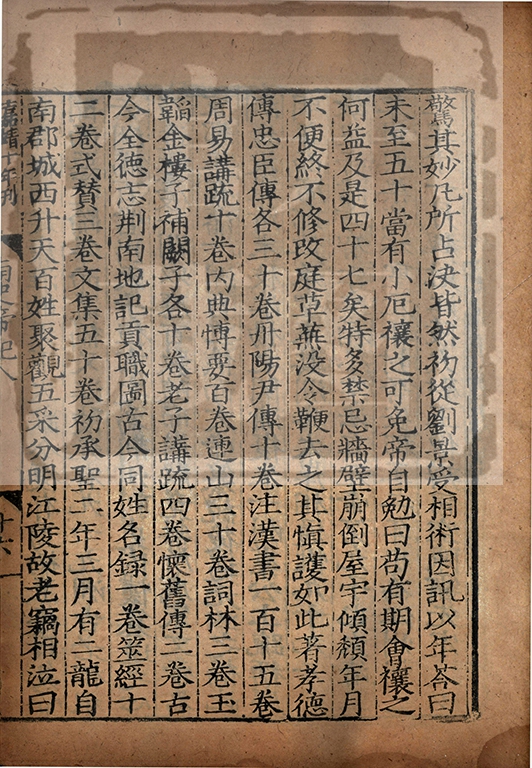 驚其妙凡所占決皆然初從劉景受相術因訊以年荅曰
未至五十當有小厄禳之可免帝自勉曰苟有期會禳之
何益及是四十七矣特多禁忌牆壁崩倒屋宇傾頹年月
不便終不修改庭草蕪没令鞭去之其慎護如此著孝德
傳忠臣傳各三十卷丹陽尹傳十卷注漢書一百十五卷
周易講疏十卷内典博要百卷連山三十卷詞林三卷玉
韜金樓子補闕子各十卷老子講疏四卷懷舊傳二卷古
今全德志荆南地記貢職圖古今同姓名録一卷筮經十
二卷式賛三卷文集五十卷初承聖二年三月有二龍自
南郡城西升天百姓聚觀五采分明江陵故老竊相泣曰
嘉靖十年刊
帝紀八
十六